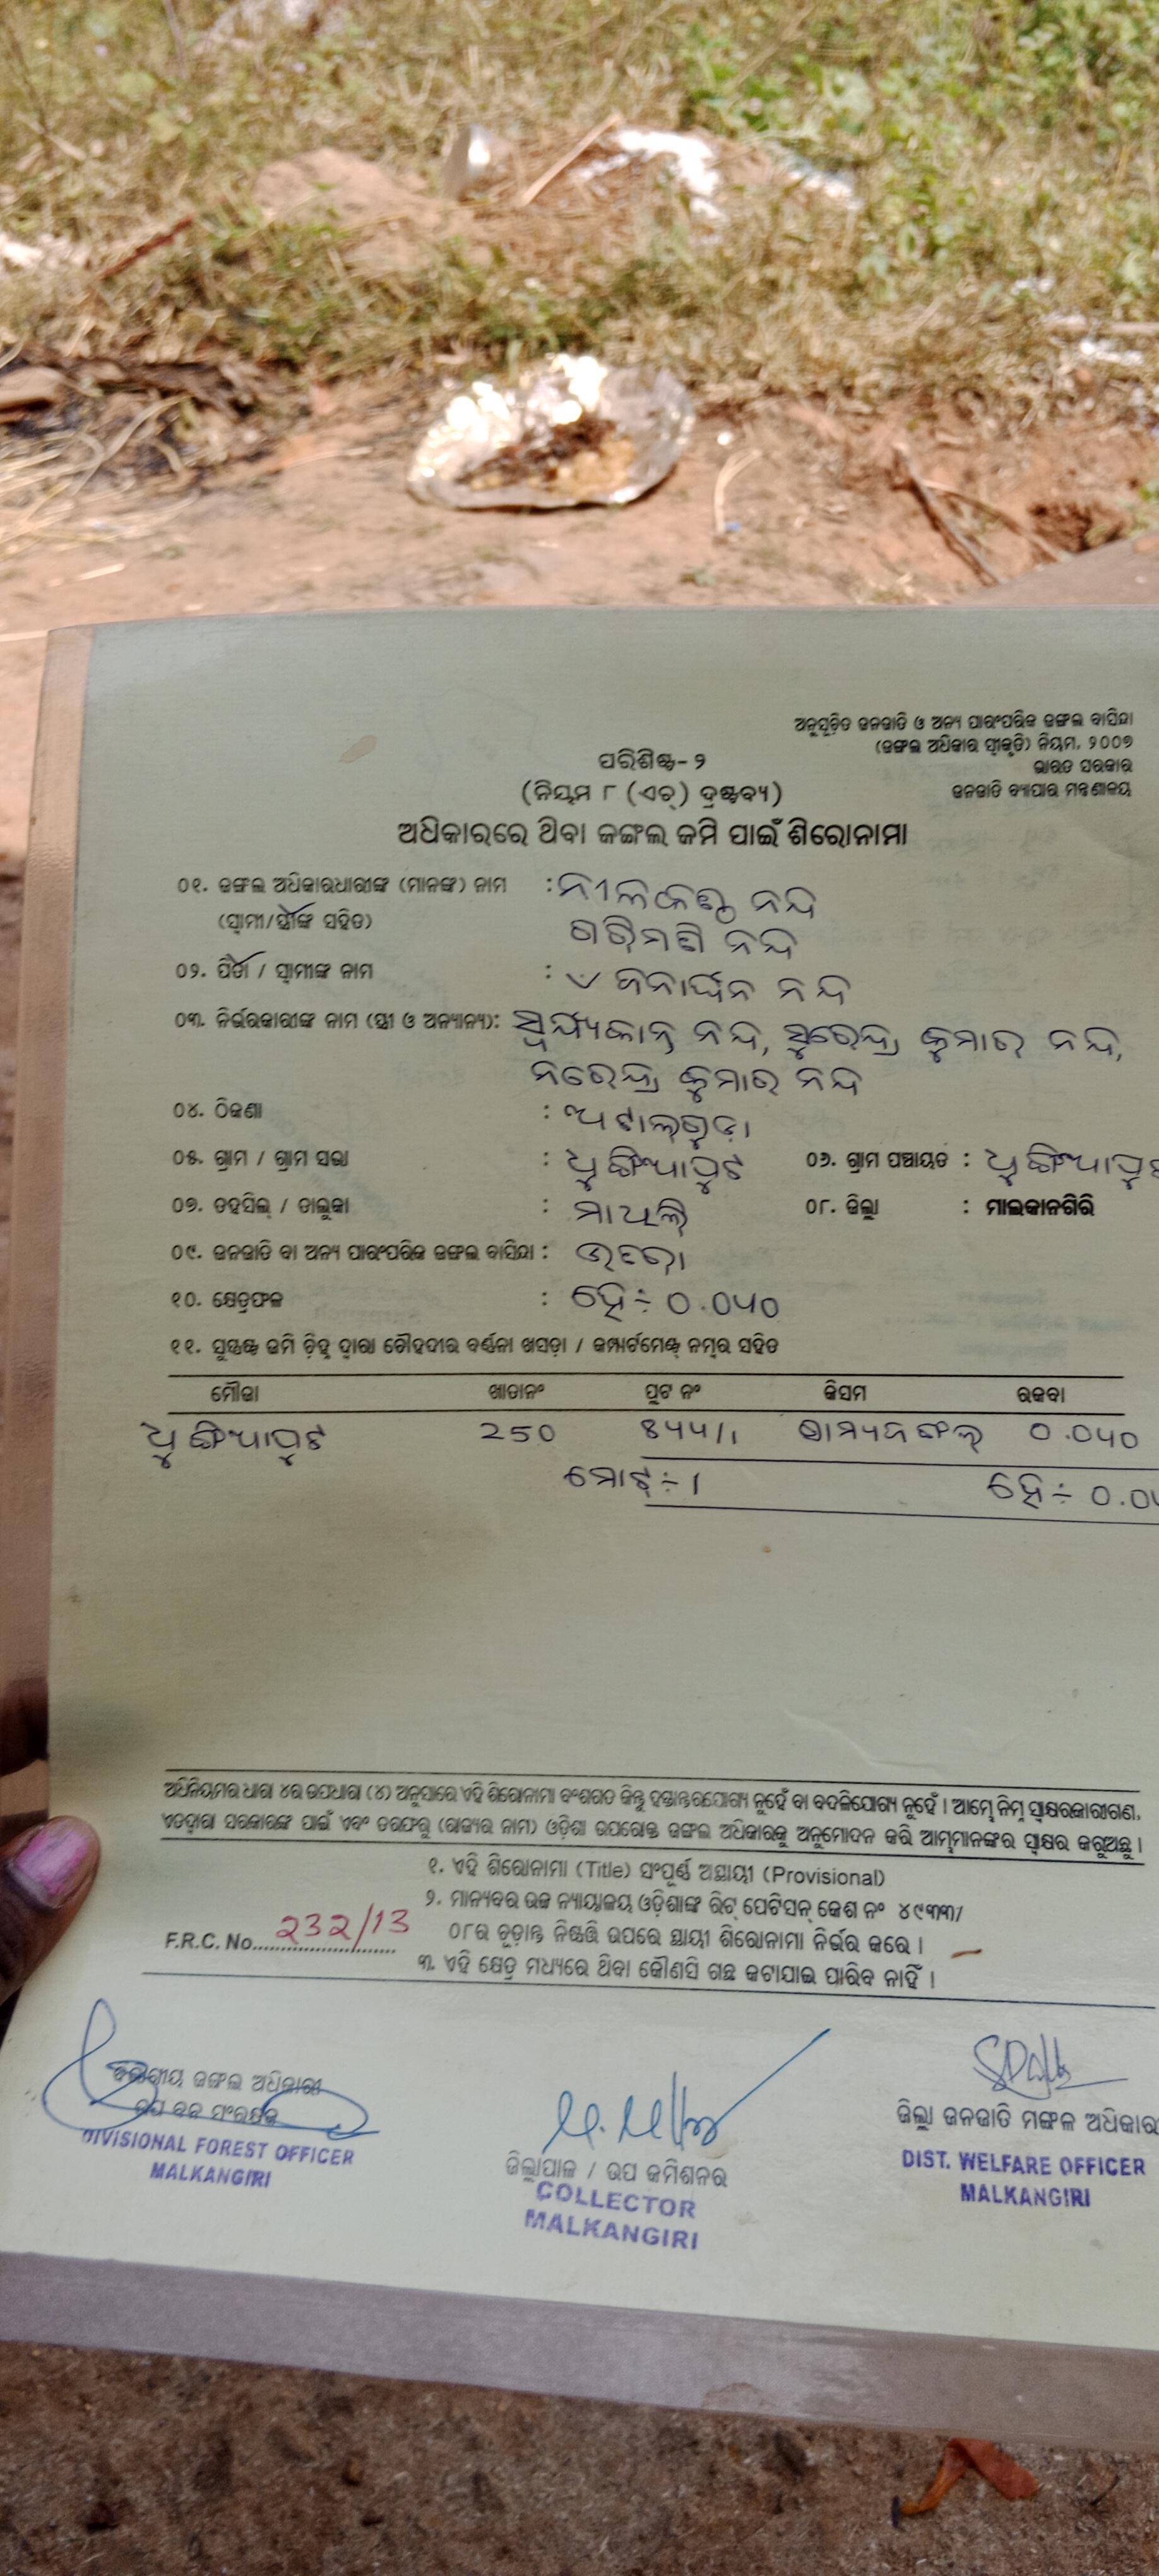 ଅନୁସୂଚିତ ଜନଜାତି ଓ ଅନ୍ୟ ପାରଂପରିକ ଜଙ୍ଗଲ ବାସିନ୍ଦା
(ଜଙ୍ଗଲ ଅଧିକାର ସ୍ୱୀକୃତି) ନିୟମ, ୨୦୦୭
ଭାରତ ସରକାର
ଜନଜାତି ବ୍ୟାପାର ମନ୍ତ୍ରଣାଳୟ
ପରିଶିଷ୍ଟ- ୨
(ନିୟମ ୮ (ଏଚ୍) ଦ୍ରଷ୍ଟବ୍ୟ)
ଅଧିକାରରେ ଥିବା ଜଙ୍ଗଲ ଜମି ପାଇଁ ଶିରୋନାମା
୦୧. ଜଙ୍ଗଲ ଅଧିକାରଧାରୀଙ୍କ (ମାନଙ୍କ) ନାମ : ନୀଳକଣ୍ଠ ନନ୍ଦ
(ସ୍ୱାମୀ/ସ୍ତ୍ରୀଙ୍କ ସହିତ) ନନ୍ଦ
୦୨. ପିତା / ସ୍ୱାମୀଙ୍କ ନାମ : ନନ୍ଦ
୦୩. ନିର୍ଭରକାରୀଙ୍କ ନାମ (ସ୍ତ୍ରୀ ଓ ଅନ୍ୟାନ୍ୟ): ସୂର୍ଯ୍ୟକାନ୍ତ ନନ୍ଦ, ସୁରେନ୍ଦ୍ର କୁମାର ନନ୍ଦ,
ନରେନ୍ଦ୍ର କୁମାର ନନ୍ଦ
୦୪. ଠିକଣା :
୦୫. ଗ୍ରାମ / ଗ୍ରାମ ସଭା : ୦୬. ଗ୍ରାମ ପଞ୍ଚାୟତ :
୦୭. ତହସିଲ୍ / ତାଲୁକା : ମାଥିଲି ୦୮. ଜିଲ୍ଲା : ମାଲକାନଗିରି
୦୯. ଜନଜାତି ବା ଅନ୍ୟ ପାରଂପରିକ ଜଙ୍ଗଲ ବାସିନ୍ଦା :
୧୦. କ୍ଷେତ୍ରଫଳ : ହେ÷ ୦.୦୪୦
୧୧. ସୁସ୍ପଷ୍ଟ ଜମି ଚିହ୍ନ ଦ୍ୱାରା ଚୌହଦୀର ବର୍ଣ୍ଣନା ଖସଡ଼ା / କମ୍ପାର୍ଟମେଣ୍ଟ ନମ୍ବର ସହିତ
ମୌଜା ଖାତାନଂ ପ୍ଲଟ ନଂ କିସମ ରକବା
250 ଗ୍ରାମ୍ୟଜଙ୍ଗଲ ୦.୦୪୦
ମୋଟ୍÷ 1 ହେ÷
ଅଧିନିୟମର ଧାରା ୪ର ଉପଧାରା (୪) ଅନୁସାରେ ଏହି ଶିରୋନାମା ବଂଶଗତ କିନ୍ତୁ ହସ୍ତାନ୍ତରଯୋଗ୍ୟ ନୁହେଁ ବା ବଦଳିଯୋଗ୍ୟ ନୁହେଁ । ଆମ୍ଭେ ନିମ୍ନ ସ୍ୱାକ୍ଷରକାରୀଗଣ,
ଏତଦ୍ୱାରା ସରକାରଙ୍କ ପାଇଁ ଏବଂ ତରଫରୁ (ରାଜ୍ୟର ନାମ) ଓଡ଼ିଶା ଉପରୋକ୍ତ ଜଙ୍ଗଲ ଅଧିକାରକୁ ଅନୁମୋଦନ କରି ଆମ୍ଭମାନଙ୍କର ସ୍ୱାକ୍ଷର କରୁଅଛୁ ।
୧. ଏହି ଶିରୋନାମା (Title) ସଂପୂର୍ଣ୍ଣ ଅସ୍ଥାୟୀ (Provisional)
୨. ମାନ୍ୟବର ଉଚ୍ଚ ନ୍ୟାୟାଳୟ ଓଡ଼ିଶାଙ୍କ ରିଟ୍ ପେଟିସନ୍ କେଶ ନଂ ୪୯୩୩/
୦୮ର ଚୂଡ଼ାନ୍ତ ନିଷ୍ପତ୍ତି ଉପରେ ସ୍ଥାୟୀ ଶିରୋନାମା ନିର୍ଭର କରେ ।
F.R.C. No. 232/13
୩. ଏହି କ୍ଷେତ୍ର ମଧ୍ୟରେ ଥିବା କୌଣସି ଗଛ କଟାଯାଇ ପାରିବ ନାହିଁ ।
ବିଭାଗୀୟ ଜଙ୍ଗଲ ଅଧିକାରୀ
ଉପ ବନ ସଂରକ୍ଷକ
DIVISIONAL FOREST OFFICER
MALKANGIRI
ଜିଲ୍ଲାପାଳ / ଉପ କମିଶନର
COLLECTOR
MALKANGIRI
ଜିଲ୍ଲା ଜନଜାତି ମଙ୍ଗଳ ଅଧିକାରୀ
DIST. WELFARE OFFICER
MALKANGIRI